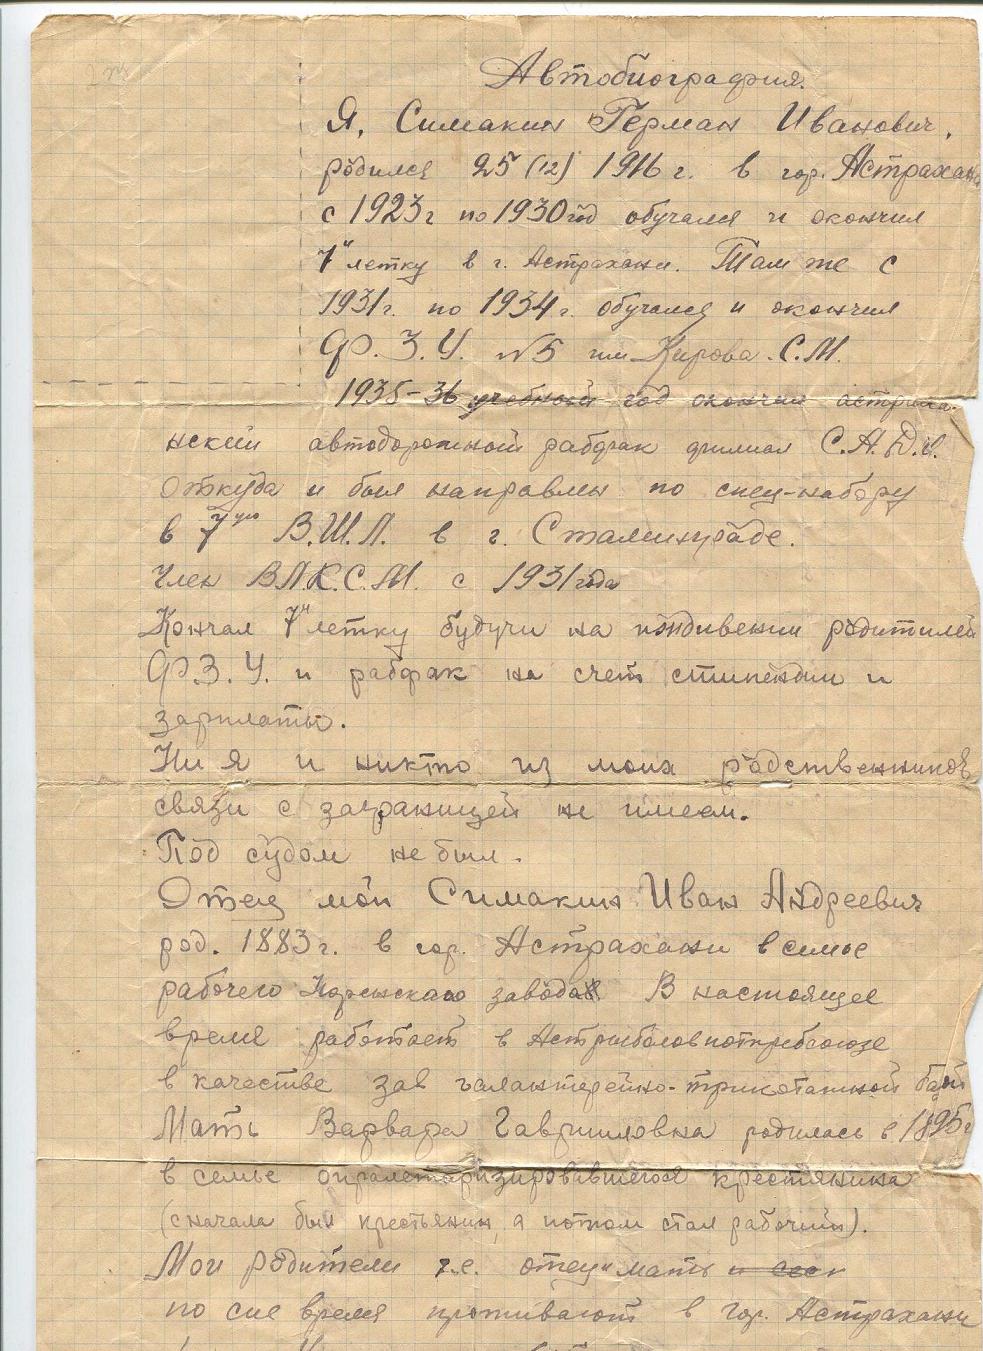 Автобиография.
Я, Симакин Герман Иванович,
родился 25 (12) 1916 г. в гор. Астрахани
с 1923 г по 1930 год обучался и окончил
7"летку в г. Астрахани. Там же с
1931 г. по 1934 г. обучался и окончил
Ф.З.У. №5 им Кирова С.М.
1935-36 учебный год окончил астраха-
нский автодорожный рабфак филиал С.А.Д.И.
Откуда и был направлен по спец-набору
в 7ую В.Ш.Л. в г. Сталинграде.
Член В.Л.К.С.М. с 1931 года
Кончал 7"летку будучи на иждивении родителей
Ф.З.У. и рабфак на счет стипендии и
зарплаты.
Ни я и никто из моих родственников
связи с заграницей не имеем.
Под судом не был.
Отец мой Симакин Иван Андреевич
род. 1883 г. в гор. Астрахани в семье
рабочего завода В настоящее
время работает в Астрыболовпотребсоюзе
в качестве зав галантерейно-трикотажной базой
Мать Варвара Гавриловна родилась в 1895 г
в семье опралетаризировавшегося крестянина
(сначала был крестьянин, а потом стал рабочий).
Мои родители т.е. отец и мать
по сие время проживают в гор. Астрахани